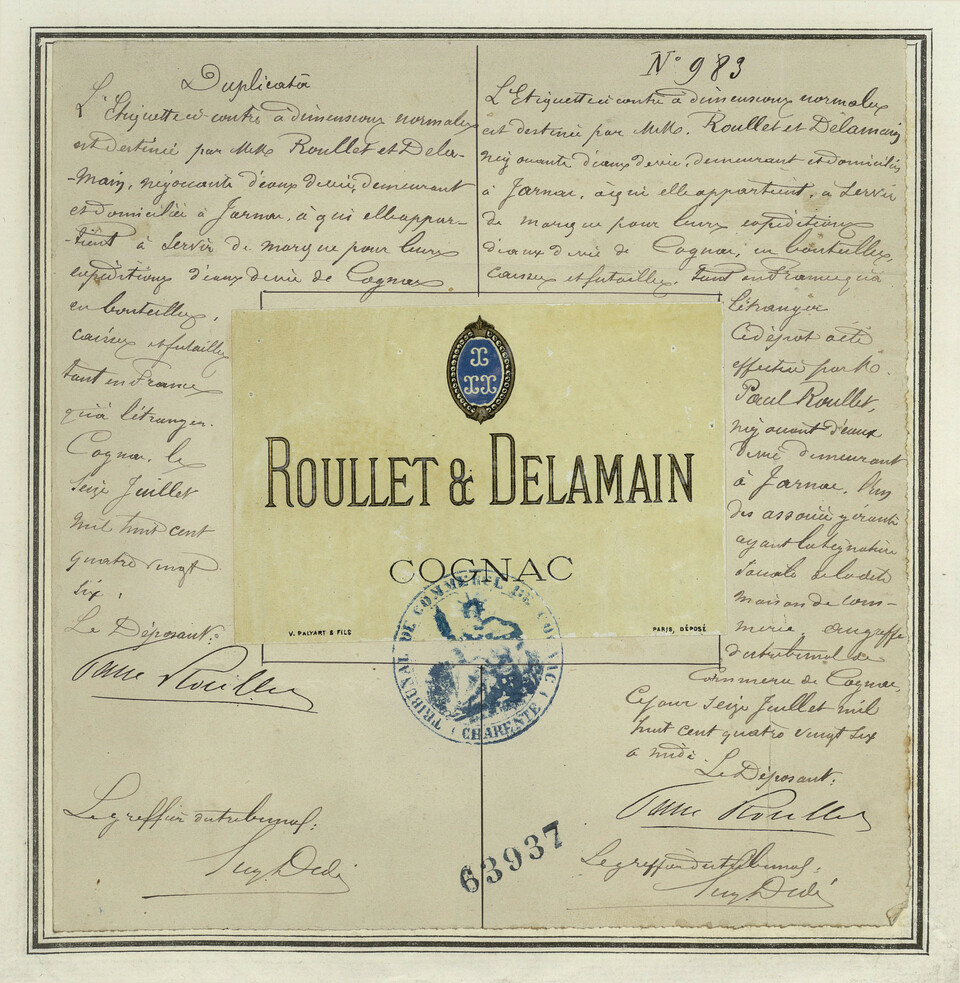 Duplicata
L'Etiquette ci-contre à dimensions normales
est destinée par MM. Roullet et Dela-
-main, négociants d'eaux de vie, demeurant
et domiciliés à Jarnac, à qui elle appar-
-tient à servir de marque pour leurs
expéditions d'eaux de vie de Cognac
en bouteilles,
caisses et futailles
tant en France
qu'à l'étranger.
Cognac, le
seize Juillet
mil huit cent
quatre vingt
six.
Le Déposant:
Paul Roullet
Le greffier du tribunal:
N° 983
L'Etiquette ci contre à dimensions normales
est destinée par MM. Roullet et Delamain
négociants d'eaux de vie, demeurant et domiciliés
à Jarnac, à qui elle appartient, à servir
de marque pour leurs expéditions
d'eaux de vie de Cognac, en bouteilles,
caisses et futailles, tant en France qu'à
l'étranger
Ce dépôt a été
effectué par M.
Paul Roullet,
négociant d'eaux
de vie demeurant
à Jarnac, l'un
des associés gérants
ayant la signature
sociale de la dite
maison de com-
merce, au greffe
du tribunal de
Commerce de Cognac,
Ce jour seize Juillet mil
huit cent quatre vingt six
à midi.
Le Déposant:
Paul Roullet
Le greffier du tribunal:
ROULLET & DELAMAIN
COGNAC
V. PALYART & FILS
PARIS, DÉPOSÉ
TRIBUNAL DE COMMERCE DE COGNAC
(CHARENTE)
63937